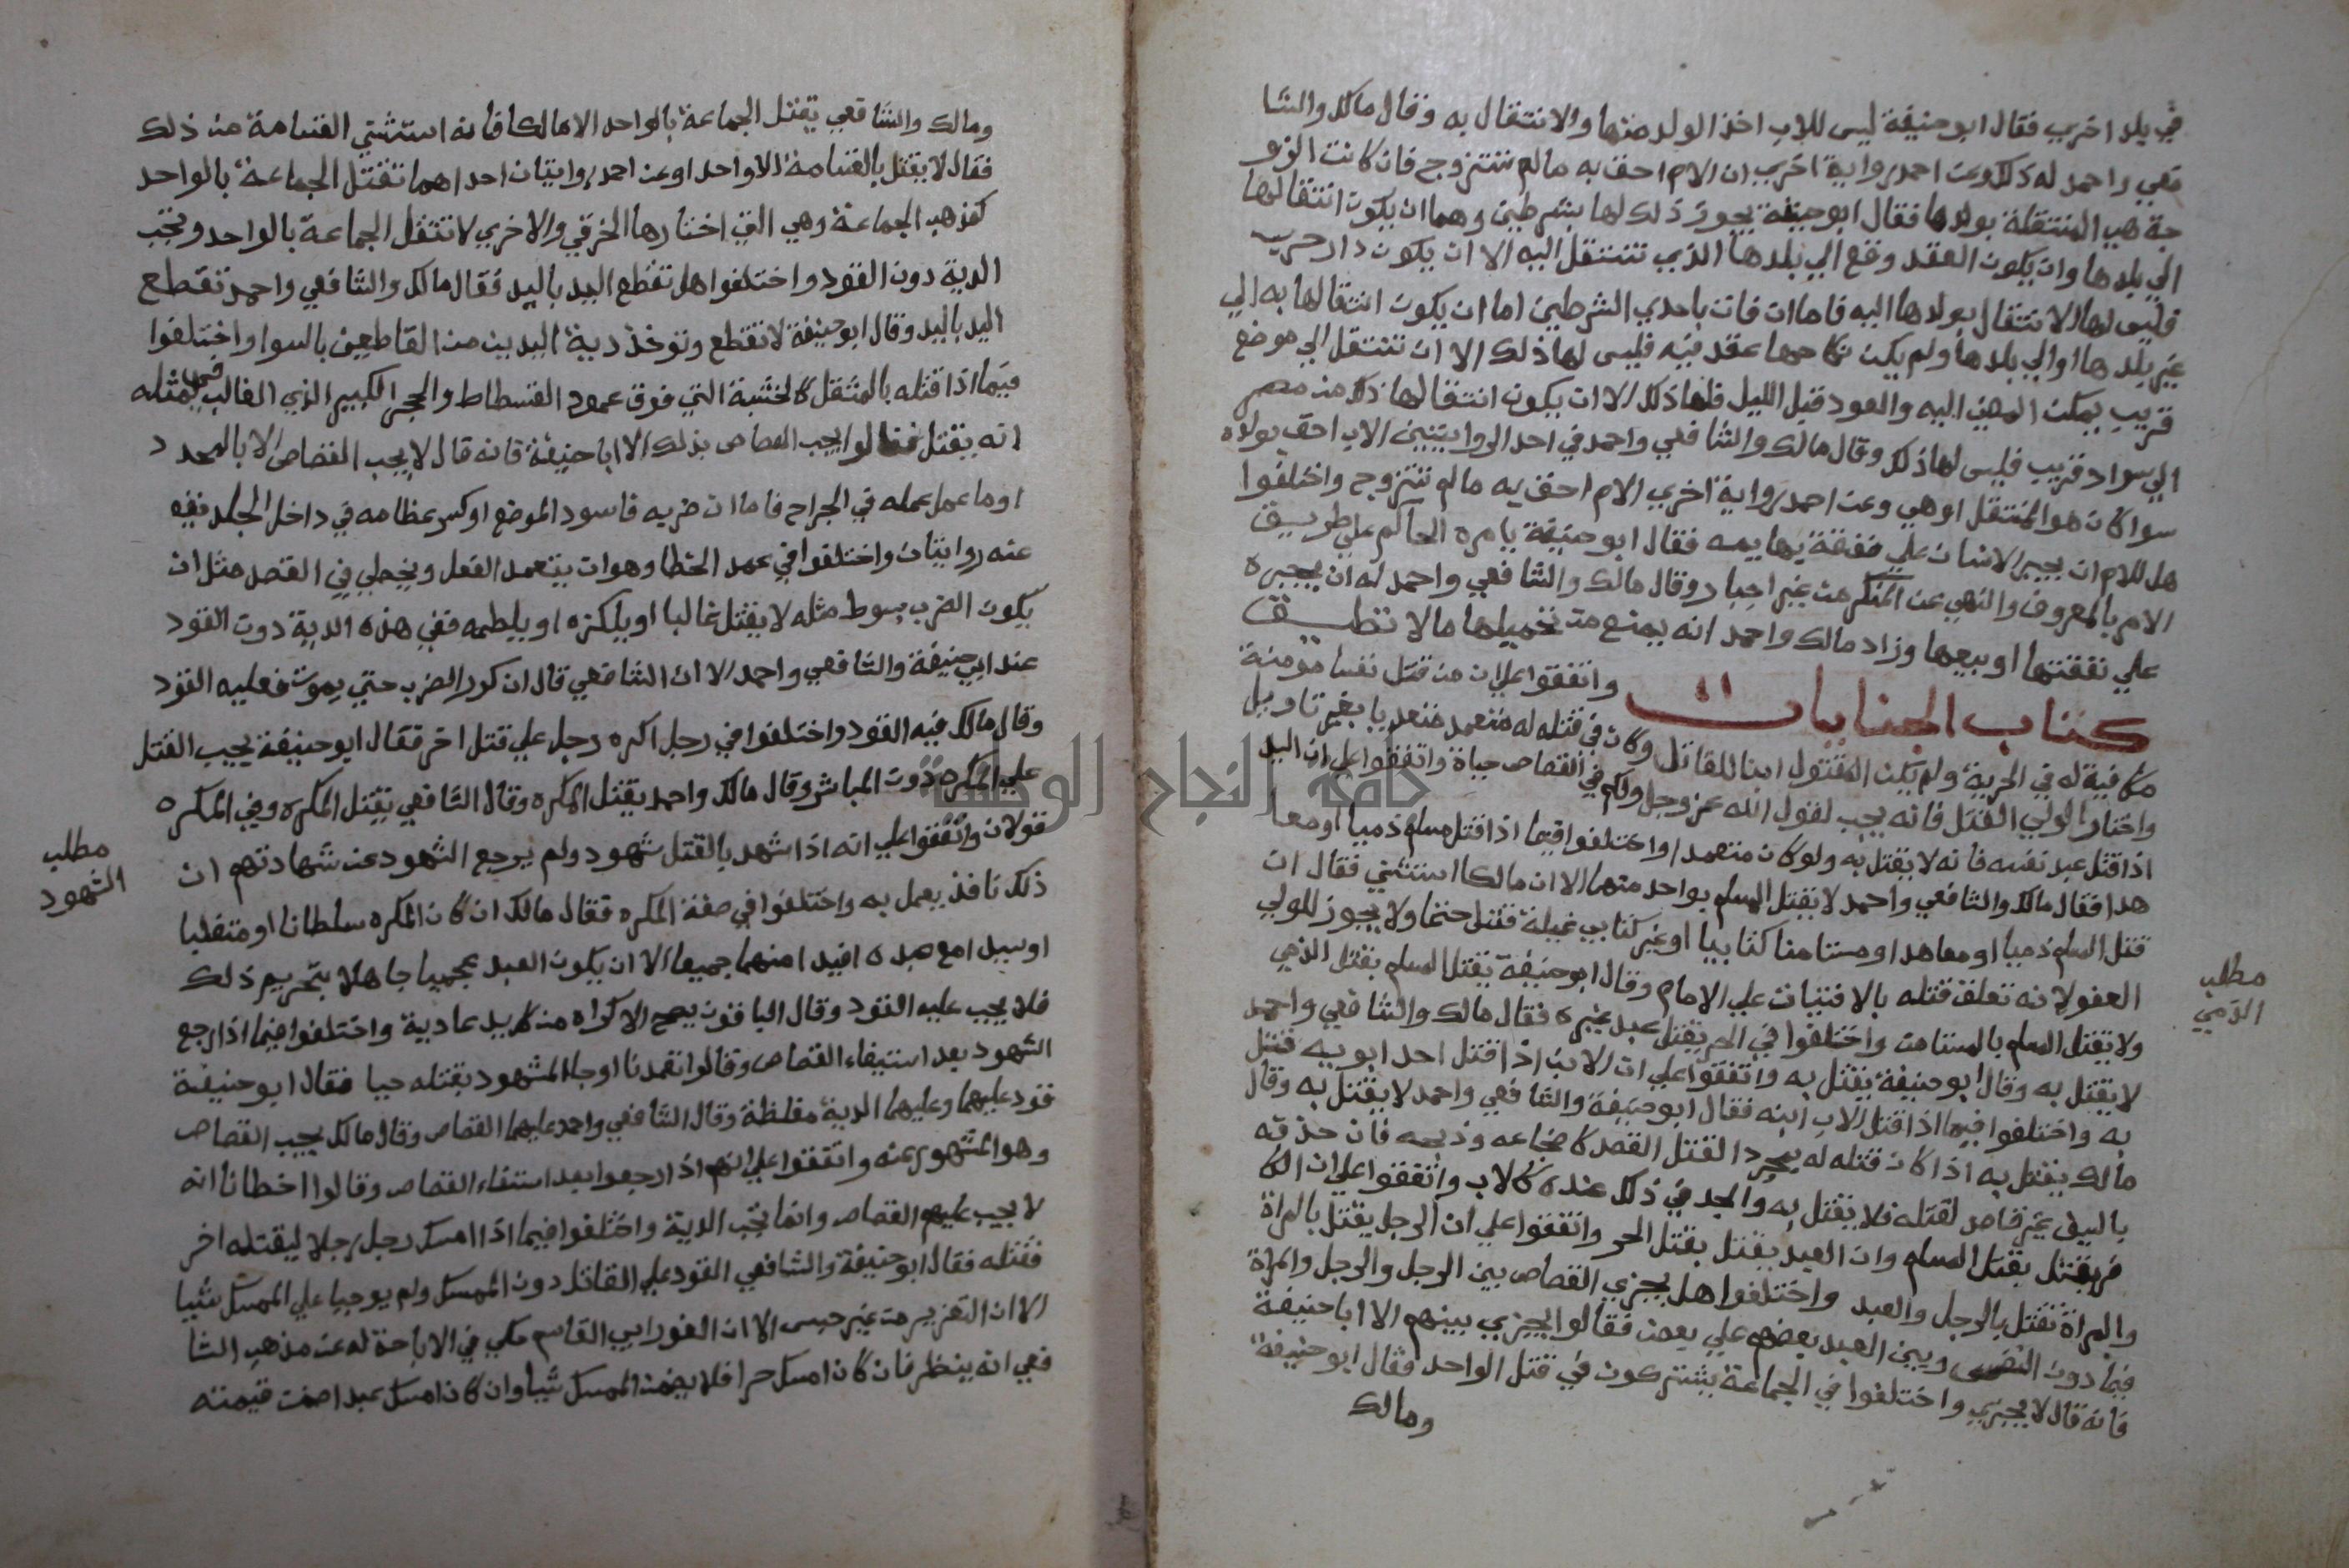 في بلد اخري فقال ابو حنيفة ليس للاب اخذ الولد منها والانتقال به وقال مالك والشا
فعي واحمد له ذلك وعن احمد رواية اخري ان الام احق به مالم تتزوج فان كانت الزو
جة هي المنتقلة بولدها فقال ابو حنيفة يجوز ذلك لها بشرطين وهما ان يكون انتقالها
الي بلدها وان يكون العقد وقع الي بلدها الذي تنتقل اليه الا ان يكون دار حرب
فليس لها الانتقال بولدها اليه فاما ان فات باحدي الشرطين اما ان يكون انتقالها به الي
غير بلدها او الي بلدها ولم يكن نكاحها عقد فيه فليس لها ذلك الا ان تنتقل الي موضع
قريب يمكن المضي اليه والعود قبل الليل فلها ذلك الا ان يكون انتقالها ذلك من مصر
الي سواد قريب فليس لها ذلك وقال مالك والشافعي واحمد في احد الروايتين الاب احق بولده
سوا كان هو المنتقل او هي وعن احمد رواية اخري الام احق به مالم تتزوج واختلفوا
هل للامام ان يجبر الانسان علي نفقة بهايمه فقال ابو حنيفة يامره الحاكم علي طريق
الامر بالمعروف والنهي عن المنكر من غير اجبار وقال مالك والشافعي واحمد له ان يجبره
علي نفقتها او بيعها وزاد مالك واحمد انه يمنع من تحميلها ما لا تطيق
كتاب الجنايات واتفقوا علي ان من قتل نفسا مومنة
مكافية له في الحرية ولم يكن المقتول ابنا للقاتل وكان في قتله له متعمد متعديا بغير تاويل
واختار الولي القتل فانه يجب لقول الله عز وجل ولكم في القصاص حياة واتفقوا علي ان السيد
اذا قتل عبد نفسه فانه لا يقتل به ولو كان متعمدا واختلفوا فيما اذا قتل مسلم ذميا او معا
هدا فقال مالك والشافعي واحمد لا يقتل المسلم بواحد منهما الا ان مالكا استثني فقال ان
قتل المسلم ذميا او معاهد او مستامنا كتابيا او غير كتابي غيلة قتل حتما ولا يجوز للولي
العفو لانه تعلق قتله بالافتيات علي الامام وقال ابو حنيفة يقتل المسلم بقتل الذمي
ولا يقتل المسلم بالمستامن واختلفوا في الحر يقتل عبد غيره فقال مالك والشافعي واحمد
لا يقتل به وقال ابو حنيفة يقتل به واتفقوا علي ان الابن اذا قتل احد ابويه قتل
به واختلفوا فيما اذا قتل الاب ابنه فقال ابو حنيفة والشافعي واحمد لا يقتل به وقال
مالك يقتل به اذا كان قتله له بمجرد القتل القصد كاضجاعه وذبحه فان حذفه
بالسيف غير قاصد لقتله فلا يقتل به والجد في ذلك عنده كالاب واتفقوا علي ان الكا
فر يقتل بقتل المسلم وان العبد يقتل بقتل الحر واتفقوا علي ان الرجل يقتل بالمراة
والمراة تقتل بالرجل والعبد واختلفوا هل يجزي القصاص بين الرجل والرجل والمراة
فيما دون النفس وبين العبد بعضهم علي بعض فقالوا يجزي بينهم الا ابا حنيفة
فانه قال لا يجزي واختلفوا في الجماعة يشتركون في قتل الواحد فقال ابو حنيفة
ومالك
مطلب
الذمي
ومالك والشافعي يقتل الجماعة بالواحد الا مالكا فانه استثني القسامة من ذلك
فقال لا يقتل بالقسامة الا واحد او عن احمد روايتان احداهما تقتل الجماعة بالواحد
كمذهب الجماعة وهي التي اختارها الخرقي والاخري لا تقتل الجماعة بالواحد وتجب
الدية دون القود واختلفوا هل تقطع اليد باليد فقال مالك والشافعي واحمد تقطع
اليد باليد وقال ابو حنيفة لا تقطع وتوخذ دية اليدين من القاطعين بالسوا واختلفوا
فيما اذا قتله بالمثقل كالخشبة التي فوق عمود الفسطاط والحجر الكبير الذي الغالب في مثله
انه يقتل فقالوا يجب القصاص بذلك الا ابا حنيفة فانه قال لا يجب القصاص الا بالمحدد
او ما عمل عمله في الجراح فاما ان ضربه فاسود الموضع او كسر عظامه في داخل الجلد ففيه
عنه روايتان واختلفوا في عمد الخطا وهو ان يتعمد الفعل ويخطي في القصد مثل ان
يكون الضرب بسوط مثله لا يقتل غالبا او يلكزه او يلطمه ففي هذه الدية دون القود
عند ابي حنيفة والشافعي واحمد الا ان الشافعي قال ان كرر الضرب حتي يموت فعليه القود
وقال مالك فيه القود واختلفوا في رجل اكره رجل علي قتل اخر فقال ابو حنيفة يجب القتل
علي المكره دون المباشر وقال مالك واحمد يقتل المكره وقال الشافعي يقتل المكره وفي المكره
قولان واتفقوا علي انه اذا شهد بالقتل شهود ولم يرجع الشهود عن شهادتهم ان
ذلك نافذ يعمل به واختلفوا في صفة المكره فقال مالك ان كان المكره سلطانا او متغلبا
او سيدا مع عبده اقيد منهما جميعا الا ان يكون العبد عجميا جاهلا بتحريم ذلك
فلا يجب عليه القود وقال الباقون يصح الاكراه من كل يد عادية واختلفوا فيما اذا رجع
الشهود بعد استيفاء القصاص وقالوا تعمدنا او جا المشهود بقتله حيا فقال ابو حنيفة
قود عليهما وعليهما الدية مغلظة وقال الشافعي واحمد عليهما القصاص وقال مالك يجب القصاص
وهو المشهور عنه واتفقوا علي انهم اذا رجعوا بعد استفاء القصاص وقالوا اخطانا انه
لا يجب عليهم القصاص وانما تجب الدية واختلفوا فيما اذا امسك رجل رجلا ليقتله اخر
فقتله فقال ابو حنيفة والشافعي القود علي القاتل دون الممسك ولم يوجبا علي الممسك شيا
الا ان التعزير من غير حبس الا ان الفوراني القاسم حكي في الابانة له عن مذهب الشا
فعي انه ينظر فان كان امسك حرا فلا يضمن الممسك شيا وان كان امسك عبدا ضمن قيمته
مطلب
الشهود
جامعة النجاح الوطنية